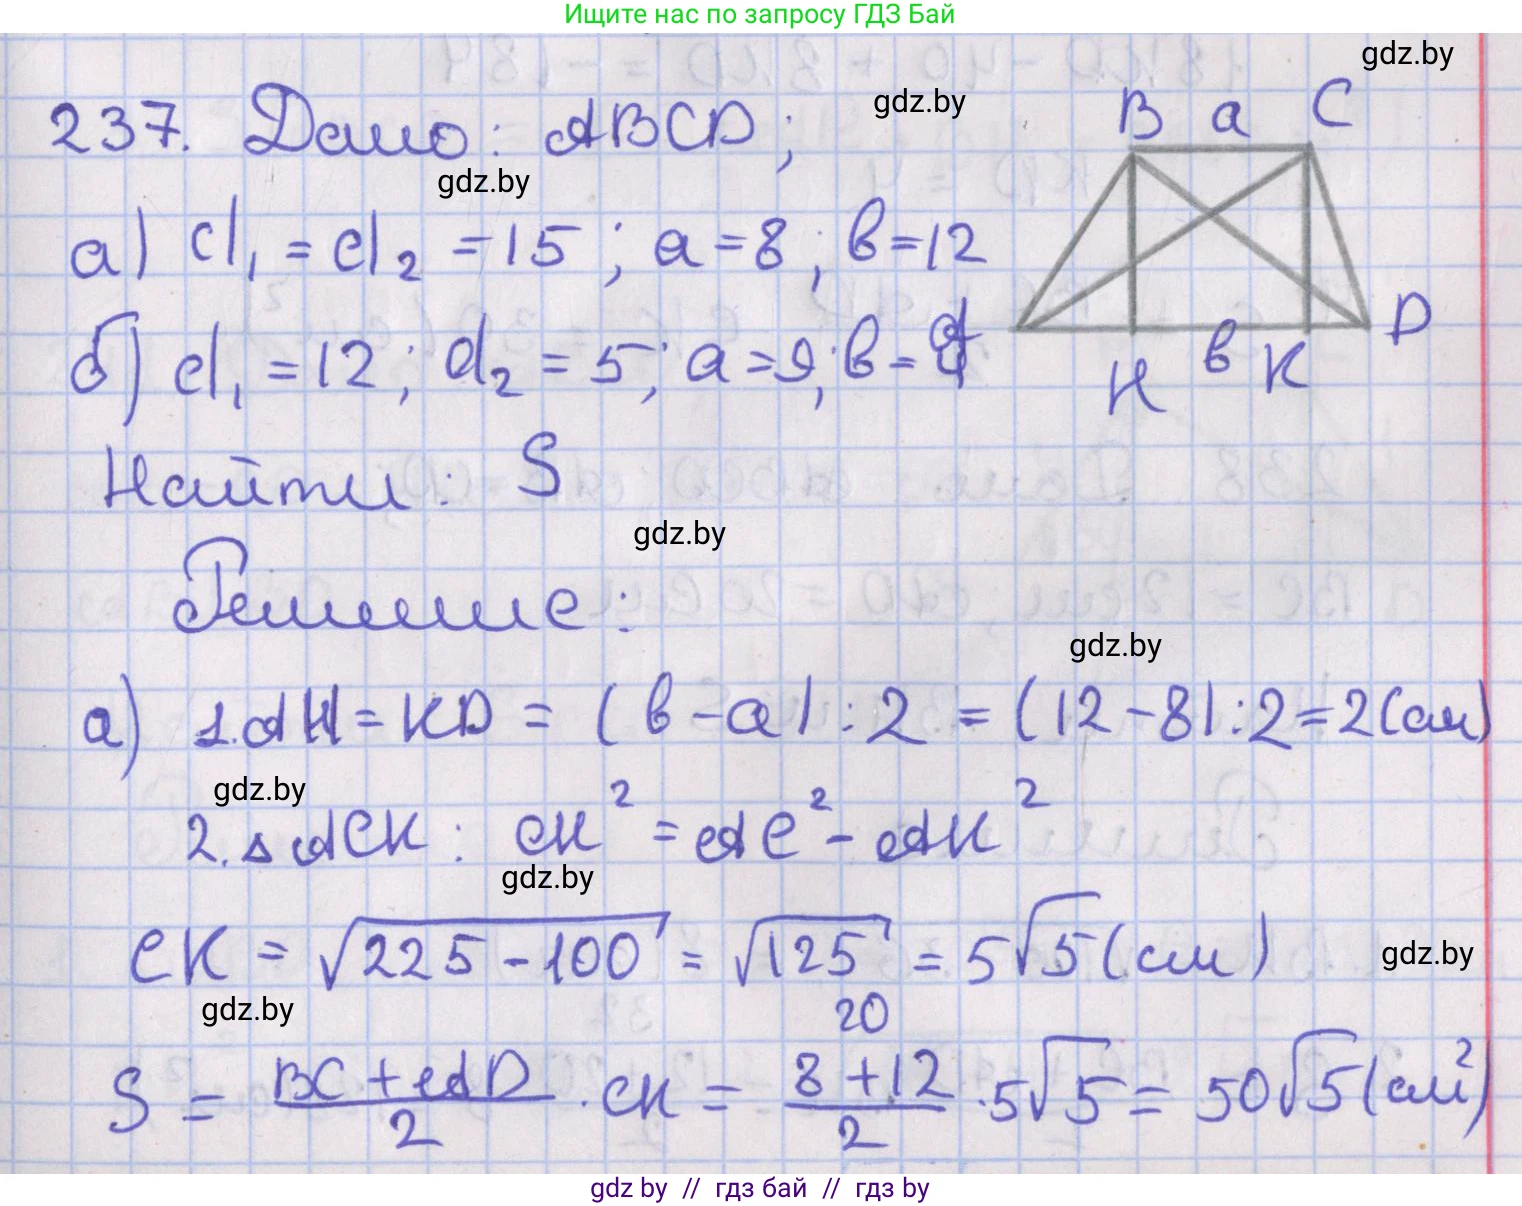 Ищите нас по запросу ГДЗ Бай
gdz.by
237. Дано: ABCD;
gdz.by
B a C
gdz.by
а) d₁ = d₂ = 15; a = 8; в = 12
б) d₁ = 12; d₂ = 5; a = 9; в =
D
H в K
Найти: S
gdz.by
Решение:
gdz.by
а) 1. AH = KD = (в - a) : 2 = (12 - 8) : 2 = 2 (см)
gdz.by
2. △ ACK: CK² = AC² - AK²
gdz.by
CK = √225 - 100 = √125 = 5√5 (см)
gdz.by
gdz.by
20
S = BC + AD / 2 · CK = 8 + 12 / 2 · 5√5 = 50√5 (см²)
gdz by // гдз бай // гдз by